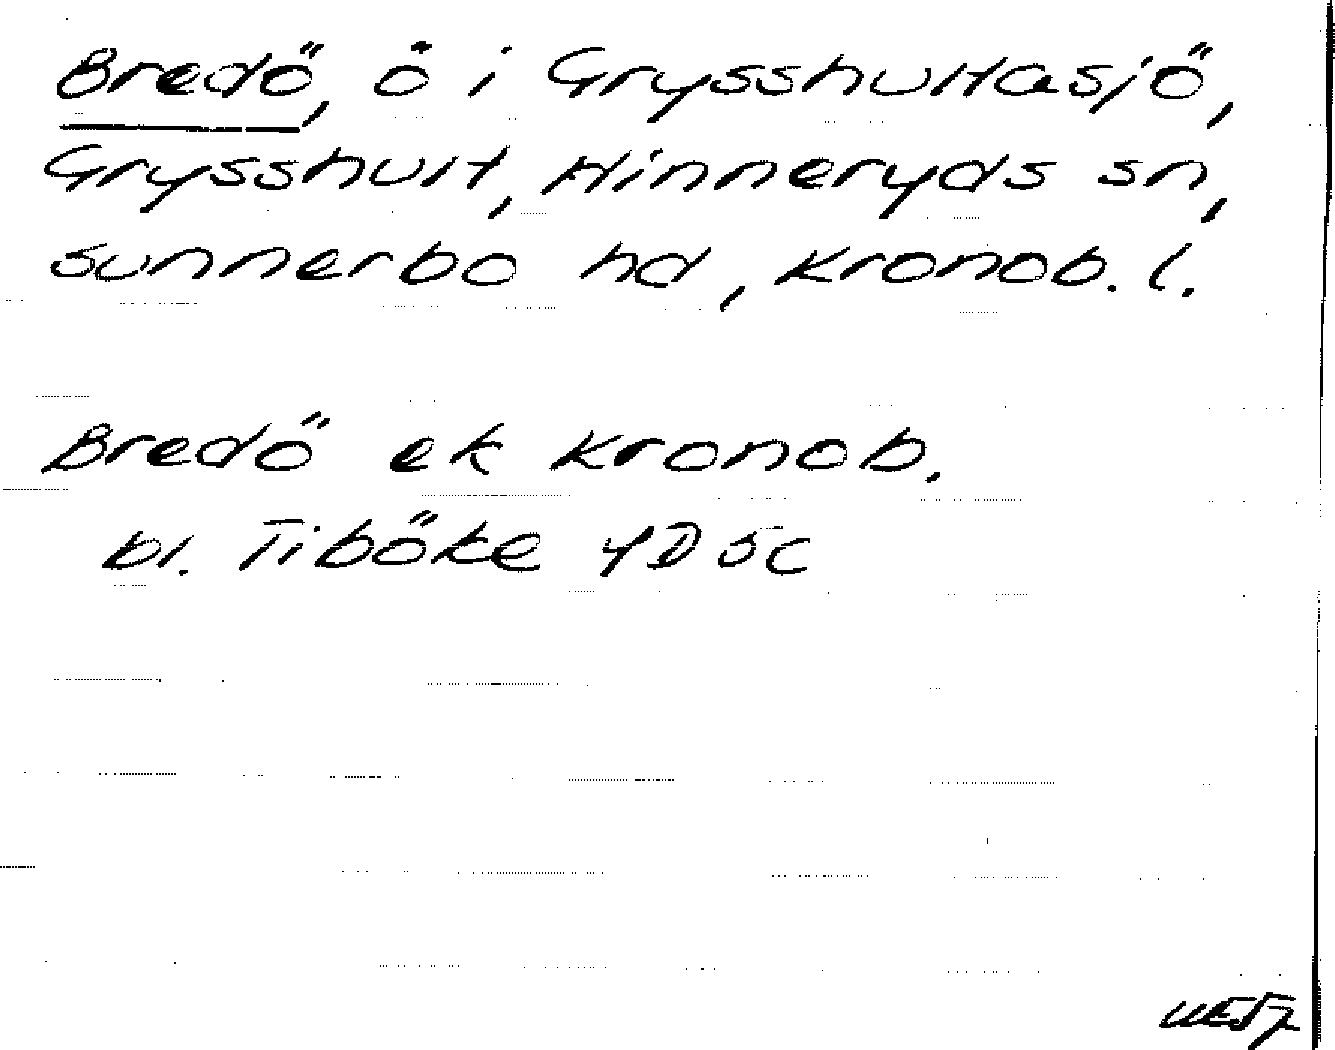 Bredö, ö i Grysshultasjö,
Grysshult, Hinneryds sn,
Sunnerbo hd, Kronob. l.
Bredö ek Kronob.
bl. Tiböke 4D 5c